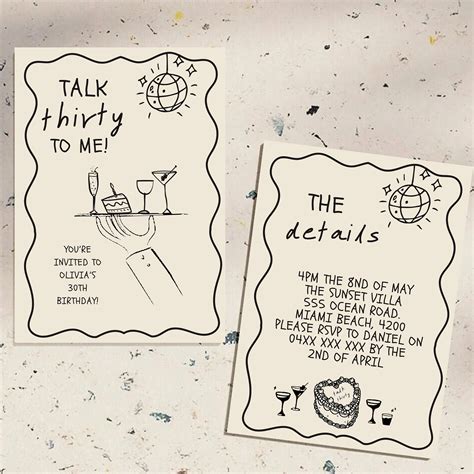 TALK
thirty
TO ME!
YOU'RE
INVITED TO
OLIVIA'S
30TH
BIRTHDAY!
THE
details
4PM THE 8ND OF MAY
THE SUNSET VILLA
555 OCEAN ROAD.
MIAMI BEACH, 4200
PLEASE RSVP TO DANIEL ON
04XX XXX XXX BY THE
2ND OF APRIL